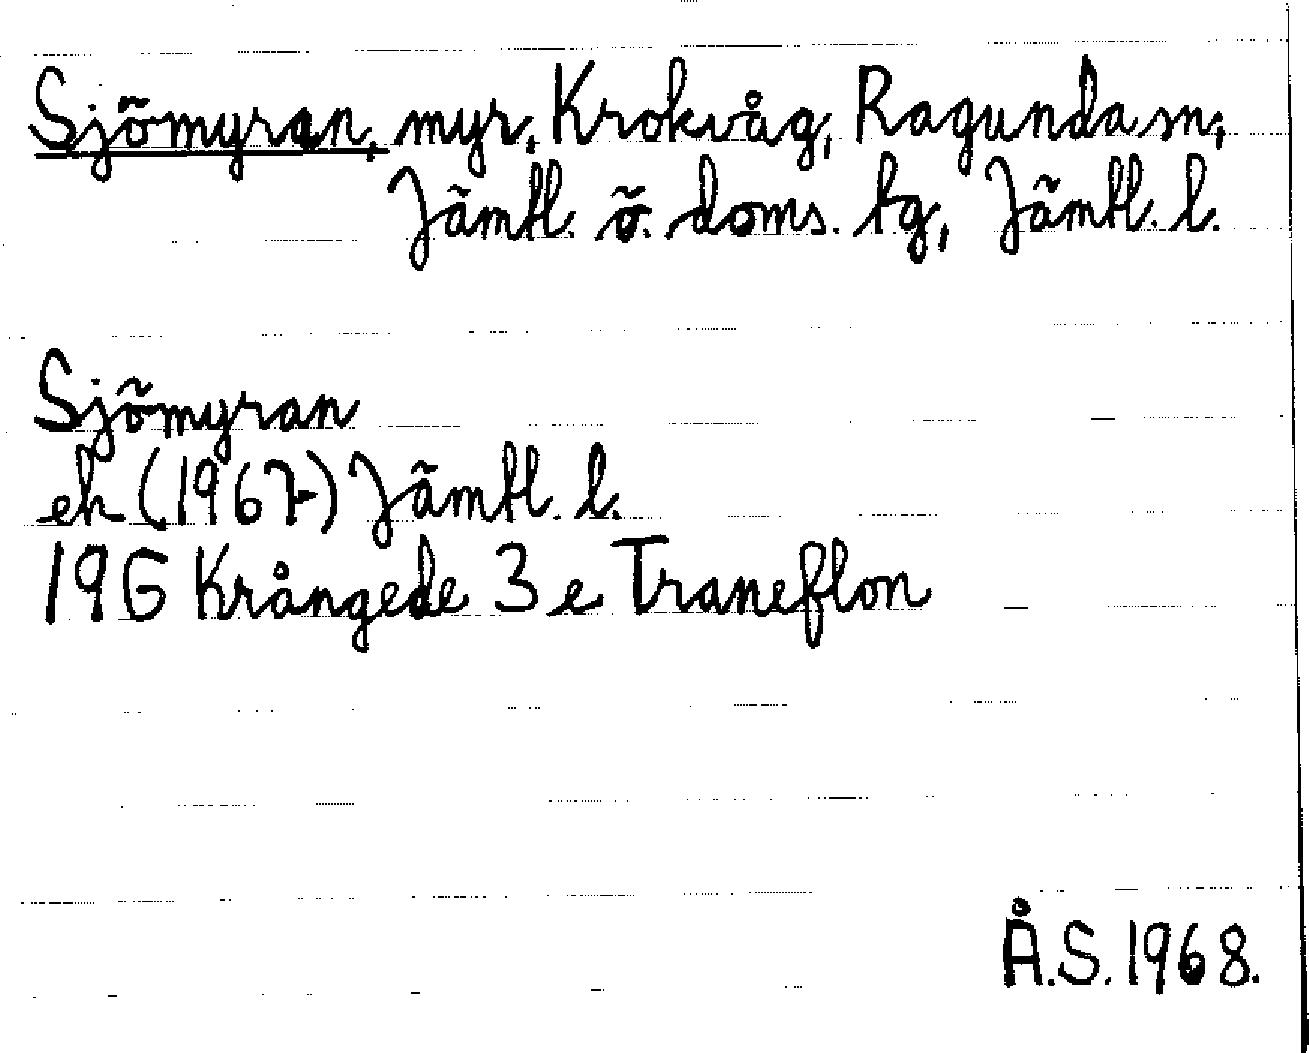 Sjömyran, myr, Krokvåg, Ragunda sn,
Jämtl. ö. doms. tg, Jämtl. l.
Sjömyran
ek (1967) Jämtl. l.
19G Krångede 3 e Traneflon
Å.S. 1968.